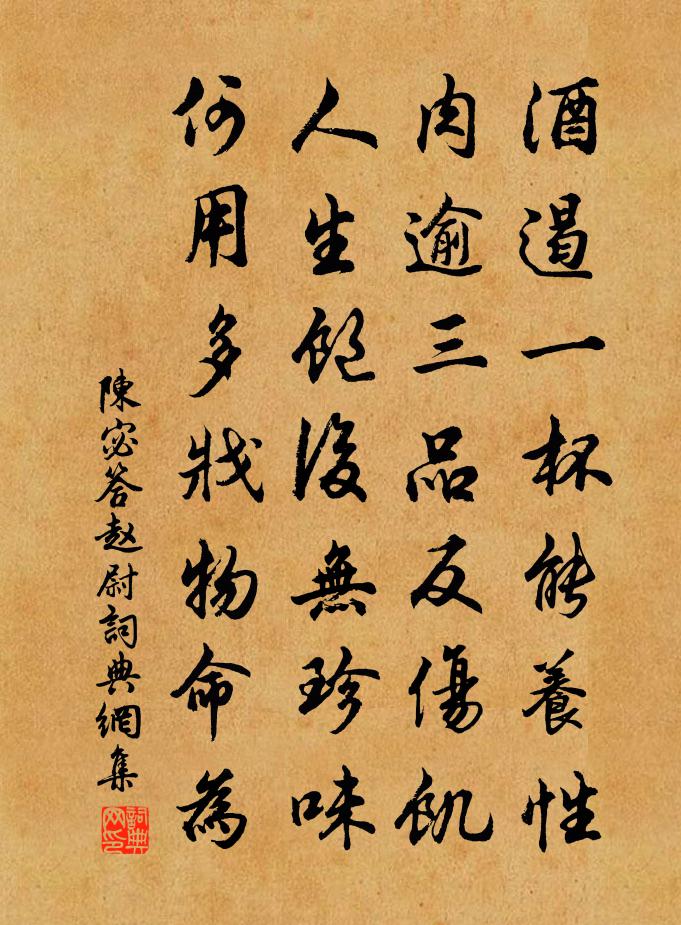 酒遏一杯能養性
肉逾三品反傷飢
人生飽後無珍味
何用多戕物命為
陳宓答赵尉詞典網集
詞典网印